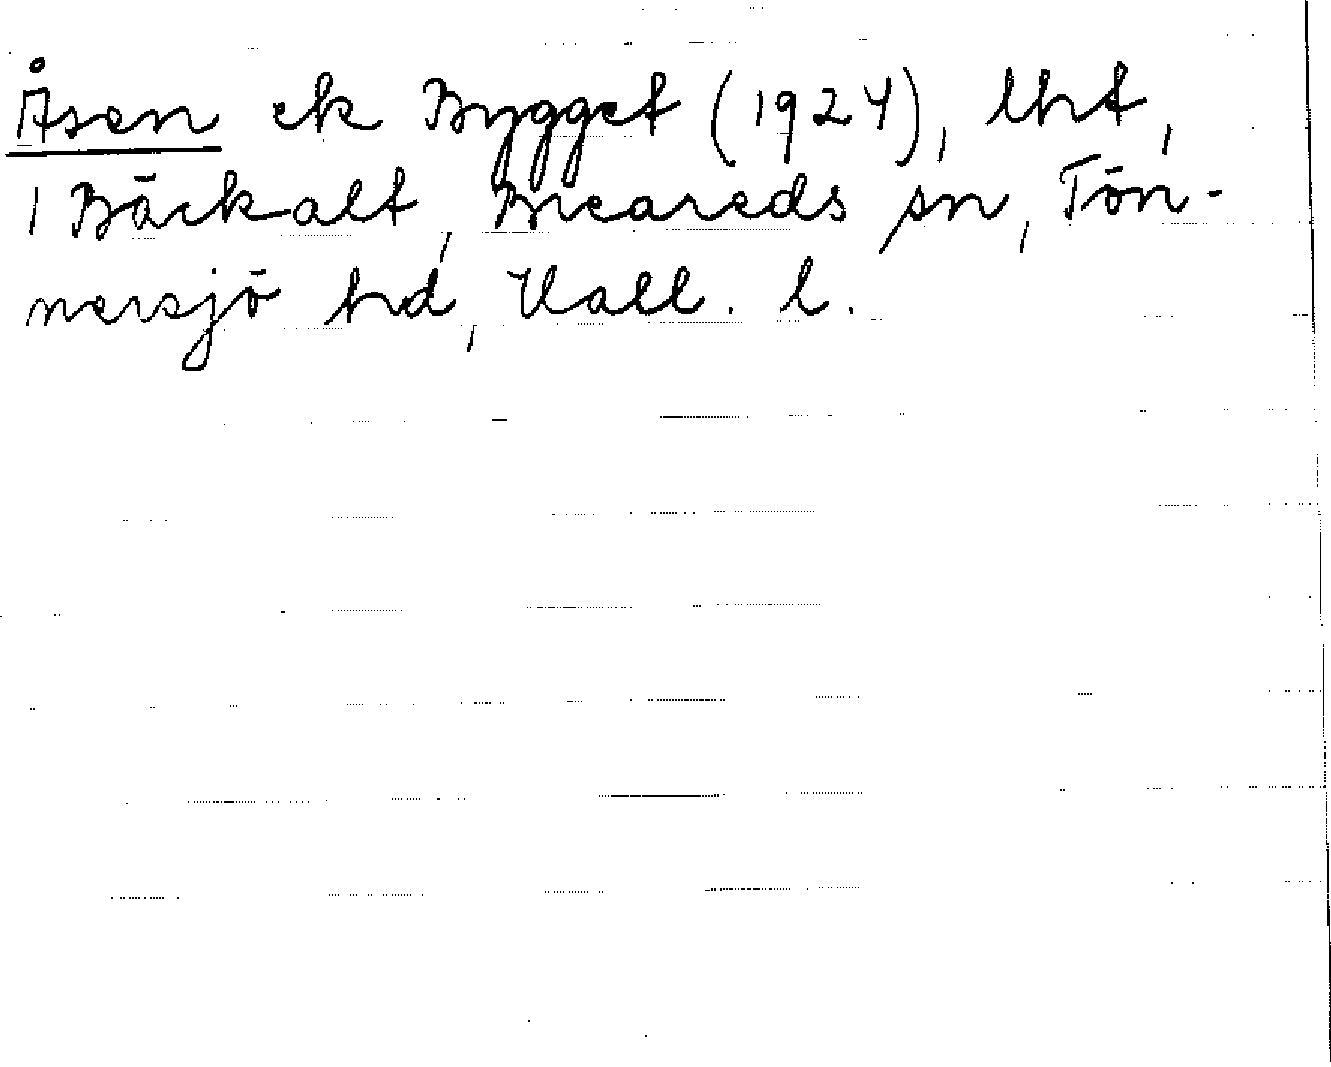 Åsen ek Bygget (1924), lht,
i Bäckalt, Breareds sn, Tön-
nersjö hd, Hall. l.